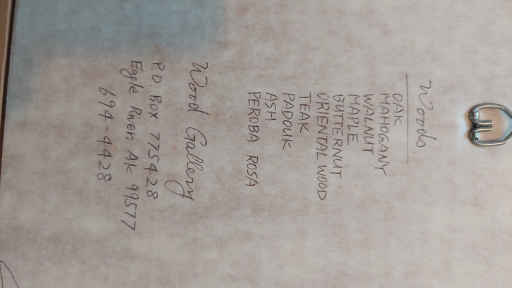 Woods
OAK
MAHOGANY
WALNUT
MAPLE
BUTTERNUT
ORIENTAL WOOD
TEAK
PADOUK
ASH
PEROBA ROSA
Wood Gallery
P.O Box 775428
Eagle River AK 99577
694-4428